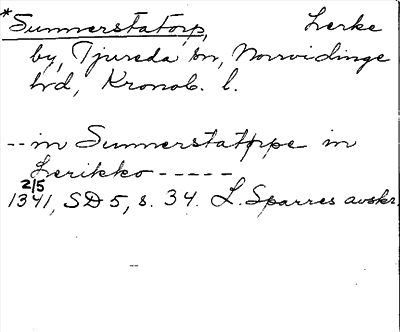 *Sunnerstatorp, Lerke
by, Tjureda sn, Norrvidinge
hd, Kronob. l.
-- in Sunnerstatþþe in
Lerikko -----
2/5
1341, SD 5, s. 34. L. Sparres avskr.